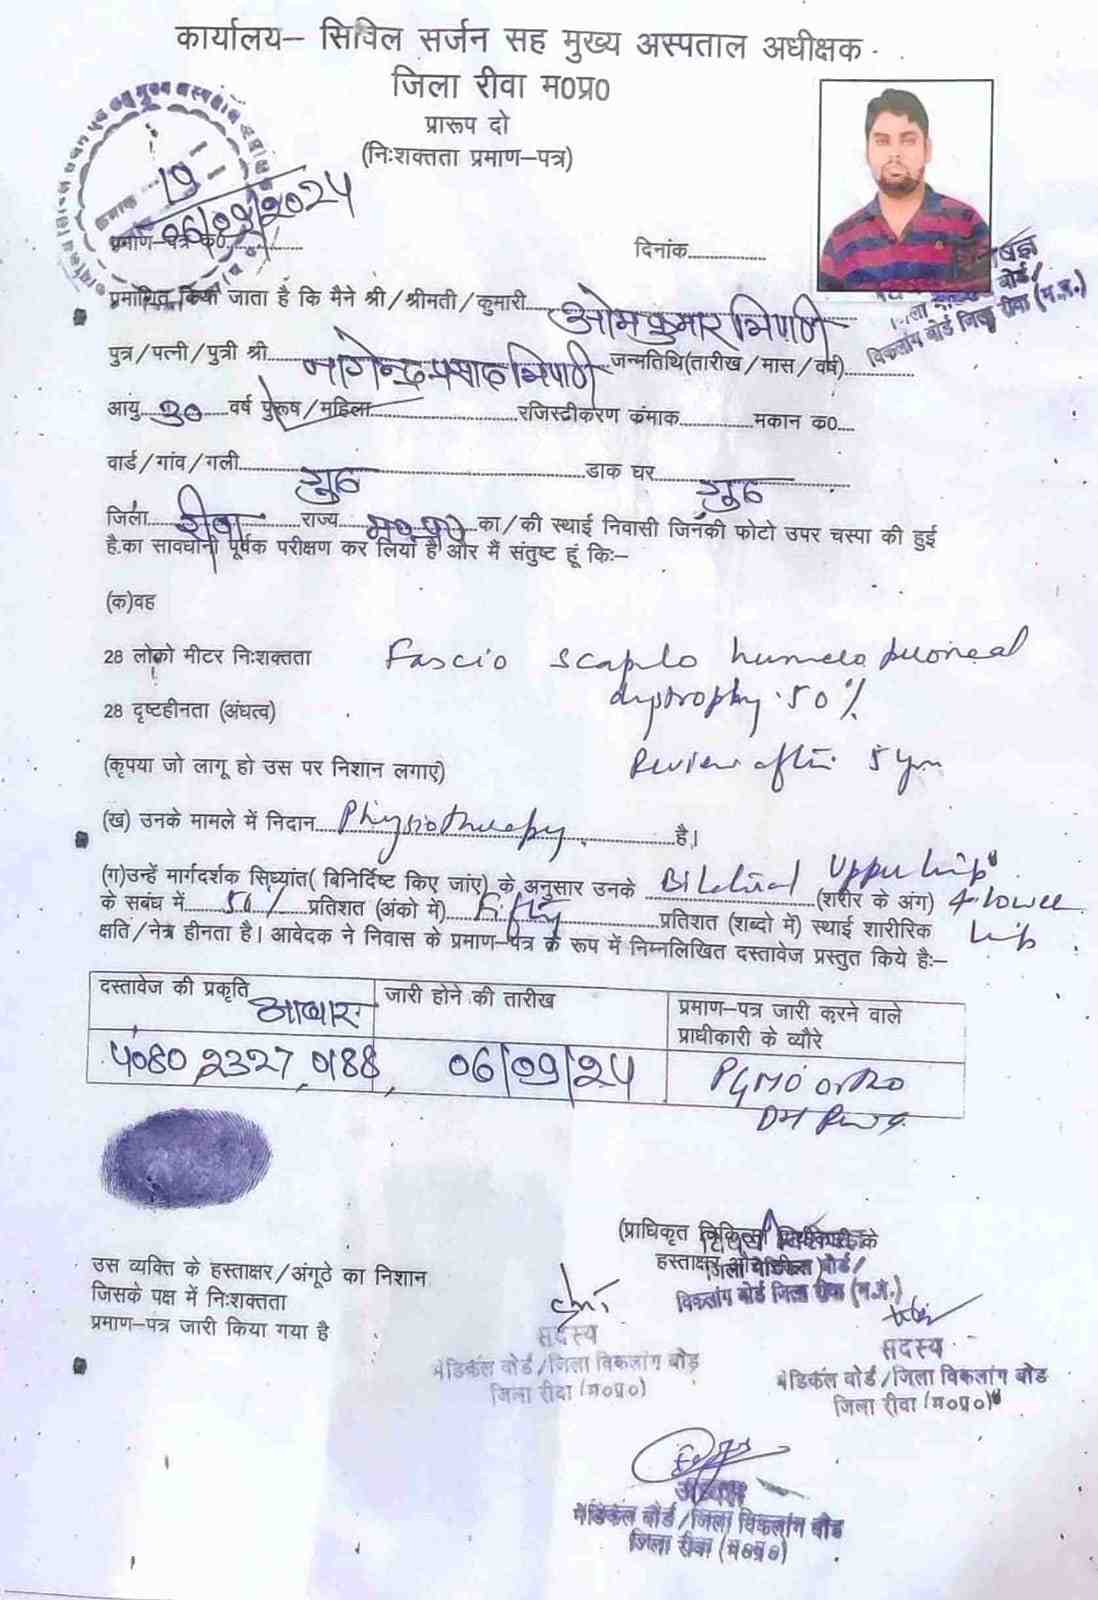 कार्यालय– सिविल सर्जन सह मुख्य अस्पताल अधीक्षक
जिला रीवा म0प्र0
प्रारूप दो
(निःशक्तता प्रमाण–पत्र)
19
06/09/2024
प्रमाण–पत्र क0............... दिनांक...............
विशेषज्ञ
जिला मेडिकल बोर्ड/
विकलांग बोर्ड जिला रीवा (म.प्र.)
प्रमाणित किया जाता है कि मैने श्री/श्रीमती/कुमारी ओमकुमार त्रिपाठी
पुत्र/पत्नी/पुत्री श्री नागेन्द्र प्रसाद त्रिपाठी जन्मतिथि(तारीख/मास/वर्ष)...............
आयु 30 वर्ष पुरूष/महिला............... रजिस्टीकरण कंमाक............... मकान क0....
वार्ड/गांव/गली गुढ डाक घर गुढ
जिला रीवा राज्य म0प्र0 का/की स्थाई निवासी जिनकी फोटो उपर चस्पा की हुई
है.का सावधानी पूर्वक परीक्षण कर लिया है और मैं संतुष्ट हूं किः–
(क)वह
28 लोको मीटर निःशक्तता Fascio scaplo humelo peroneal
dystrophy 50%
28 दृष्टहीनता (अंधत्व)
(कृपया जो लागू हो उस पर निशान लगाएं) Review after 5 yrs
(ख) उनके मामले में निदान Physiotherapy है।
(ग)उन्हें मार्गदर्शक सिध्यांत( बिनिर्दिष्ट किए जांए) के अनुसार उनके Bilateral Upper limb (शरीर के अंग) & lower
के सबंध में 50% प्रतिशत (अंको में) Fifty प्रतिशत (शब्दो में) स्थाई शारीरिक limb
क्षति/नेत्र हीनता है। आवेदक ने निवास के प्रमाण–पत्र के रूप में निम्नलिखित दस्तावेज प्रस्तुत किये हैः–
दस्तावेज की प्रकृति आधार जारी होने की तारीख प्रमाण–पत्र जारी करने वाले
प्राधीकारी के व्यौरे
4080 2327 0188 06/09/24 PGMO ortho
DH Rewa
(प्राधिकृत चिकित्सा अधिकारी के
हस्ताक्षर
जिला मेडिकल बोर्ड/
विकलांग बोर्ड जिला रीवा (म.प्र.)
उस व्यक्ति के हस्ताक्षर/अंगूठे का निशान
जिसके पक्ष में निःशक्तता
प्रमाण–पत्र जारी किया गया है
सदस्य
मेडिकल बोर्ड/जिला विकलांग बोर्ड
जिला रीवा (म०प्र०)
सदस्य
मेडिकल बोर्ड/जिला विकलांग बोर्ड
जिला रीवा (म०प्र०)
अध्यक्ष
मेडिकल बोर्ड/जिला विकलांग बोर्ड
जिला रीवा (म०प्र०)